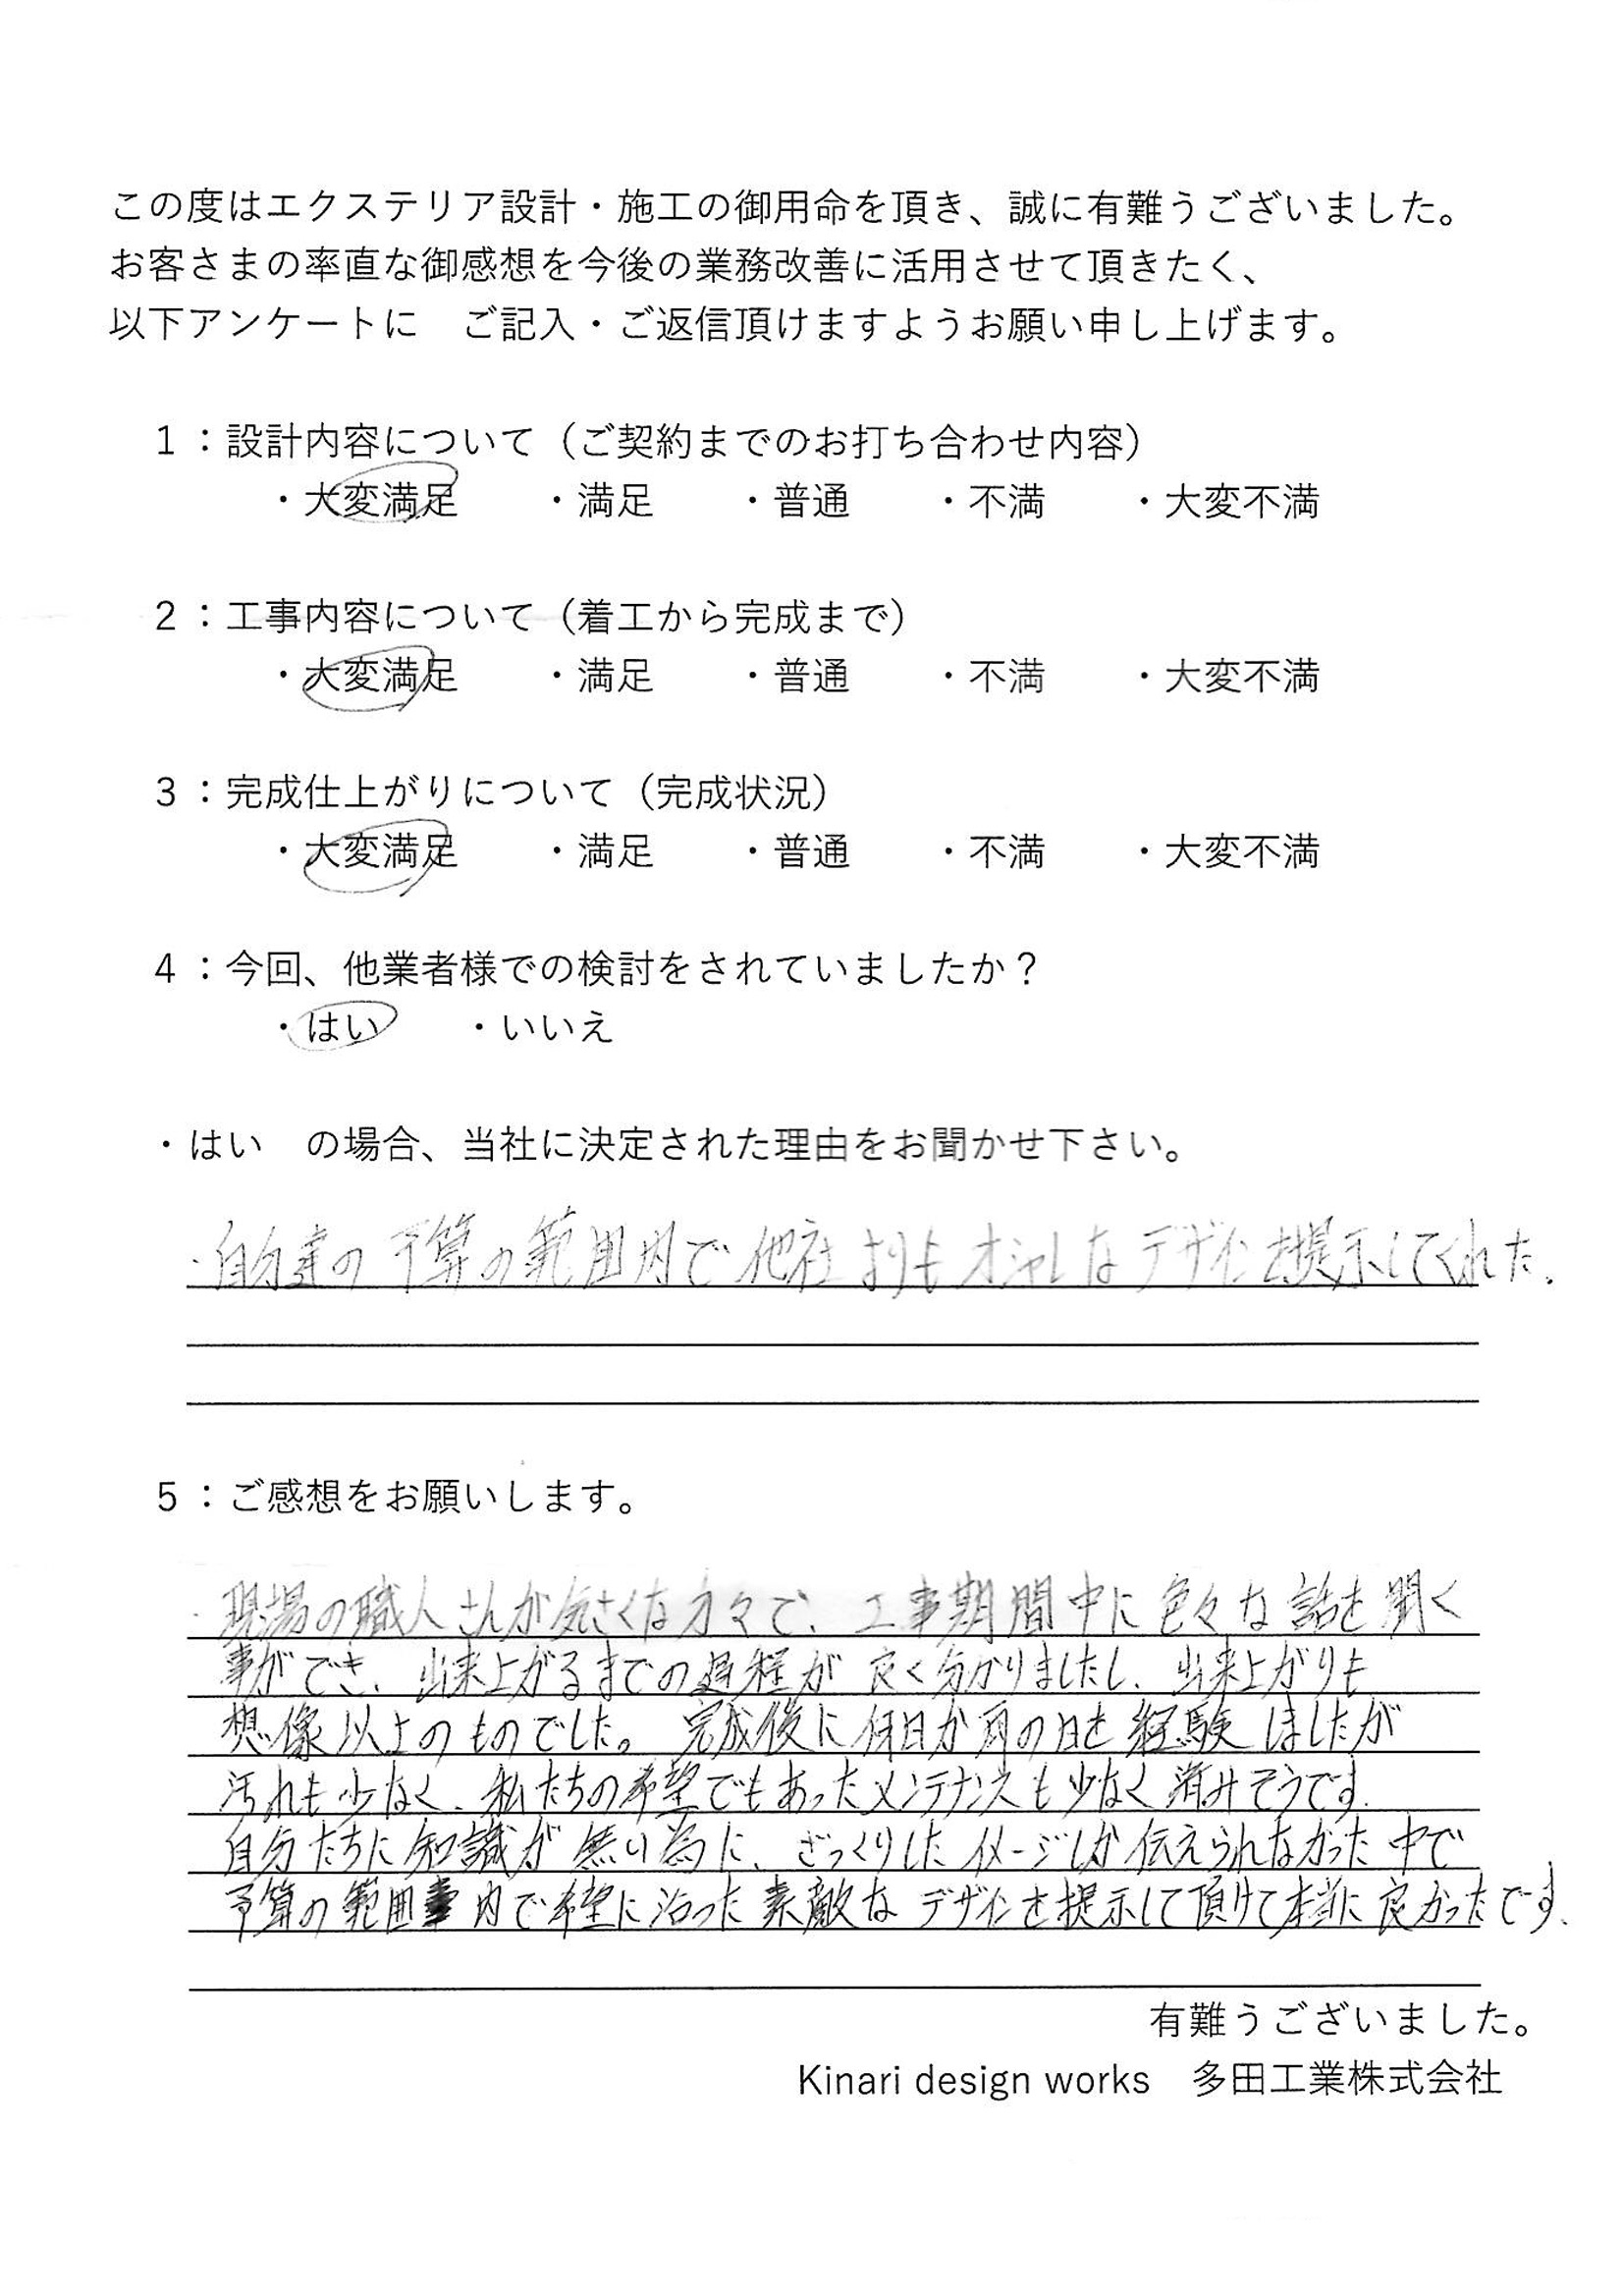 この度はエクステリア設計・施工の御用命を頂き、誠に有難うございました。
お客さまの率直な御感想を今後の業務改善に活用させて頂きたく、
以下アンケートに　ご記入・ご返信頂けますようお願い申し上げます。
1：設計内容について（ご契約までのお打ち合わせ内容）
・大変満足　・満足　・普通　・不満　・大変不満
2：工事内容について（着工から完成まで）
・大変満足　・満足　・普通　・不満　・大変不満
3：完成仕上がりについて（完成状況）
・大変満足　・満足　・普通　・不満　・大変不満
4：今回、他業者様での検討をされていましたか？
・はい　・いいえ
・はい　の場合、当社に決定された理由をお聞かせ下さい。
・自分達の予算の範囲内で他社よりもオシャレなデザインを提示してくれた。
5：ご感想をお願いします。
・現場の職人さんが気さくな方々で、工事期間中に色々な話を聞く
事ができ、出来上がるまでの過程が良く分かりましたし、出来上がりも
想像以上のものでした。完成後に何日か雨の日を経験しましたが
汚れも少なく、私たちの希望でもあったメンテナンスも少なく済みそうです。
自分たちに知識が無い為に、ざっくりしたイメージしか伝えられなかった中で
予算の範囲内で希望に沿った素敵なデザインを提示して頂けて本当に良かったです。
有難うございました。
Kinari design works　多田工業株式会社